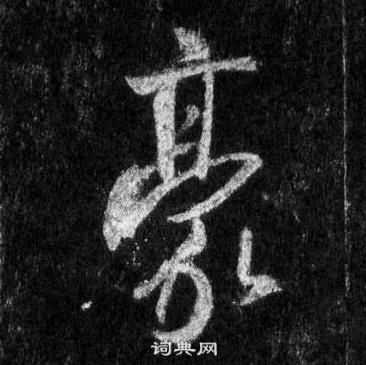 豪
词典网